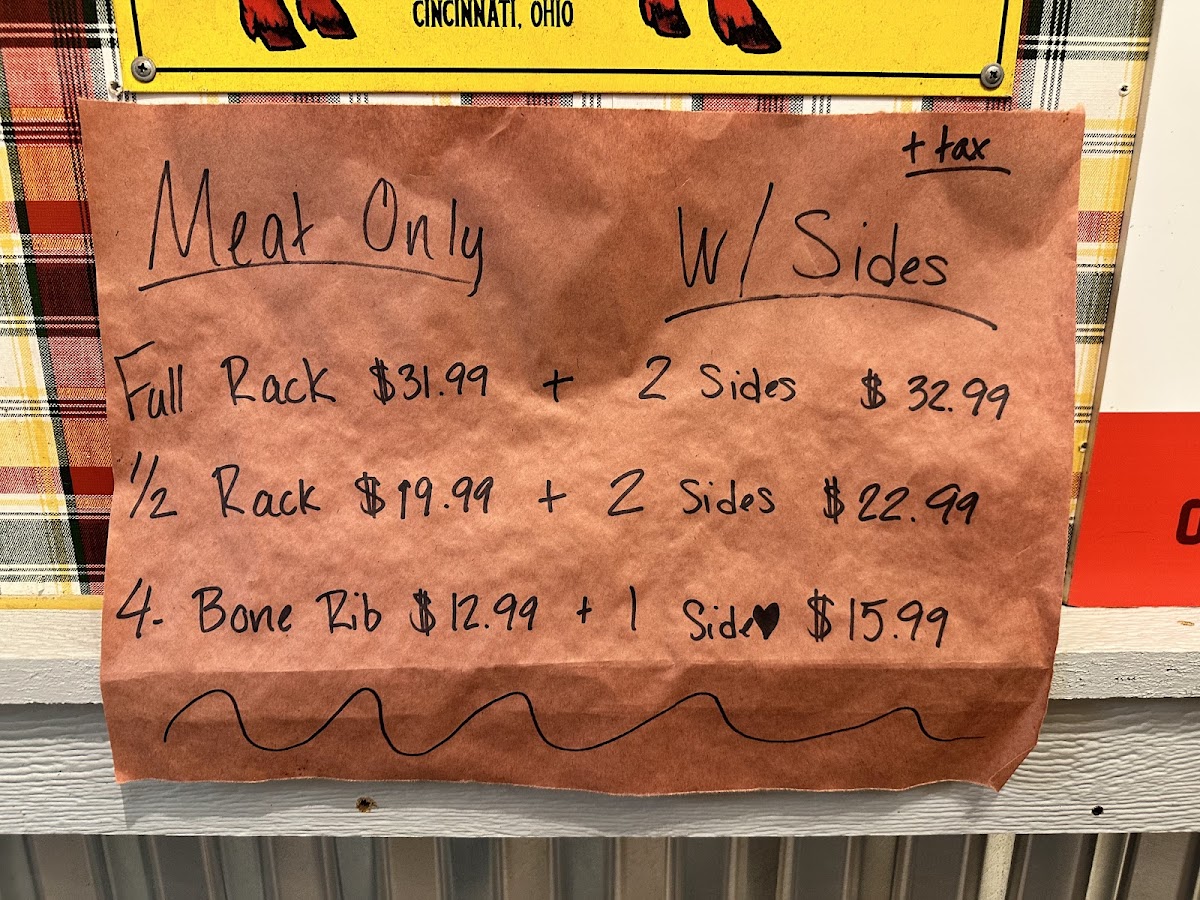 CINCINNATI, OHIO
+ tax
Meat Only W/ Sides
Full Rack $31.99 + 2 Sides $32.99
1/2 Rack $19.99 + 2 Sides $22.99
4- Bone Rib $12.99 + 1 Side♥ $15.99